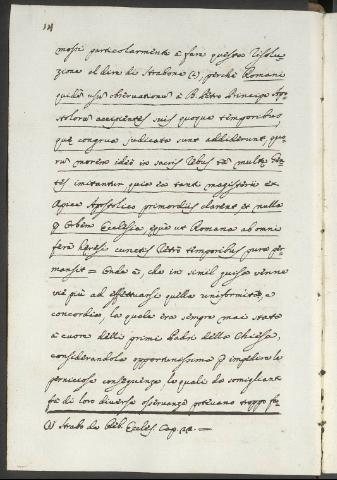 mossi particolarmente à fare questa risolu-
zione al dire di Strabone (a), perche Romani
quidem usus observationum à B. Petro Principe Apo-
stolorum accipientes suis quoque temporibus,
quæ congrua judicato sunt addiderunt, quo-
rum morem ideò in sacris rebus tam multæ Gen-
tes imitantur quia ex tanti magisterii ex
Apice Apostolico primordiis clarent et nulla
p Orbem Ecclesia æquè ut Romana ab omni
fæce hæresis cunctis retrò temporibus pura per-
mansit = Onde è, che in simil guisa venne
viè più ad effettuarsi quella uniformità, e
concordia, la quale era sempre mai stata
à cuore delli primi Padri della Chiesa,
considerandola opportunissima p impedire le
perniciose conseguenze, le quali da somigliante
fra di loro diversa osservanza potevano troppo fa-
(a) Strabo de Reb. Eccles. Cap. 22. =